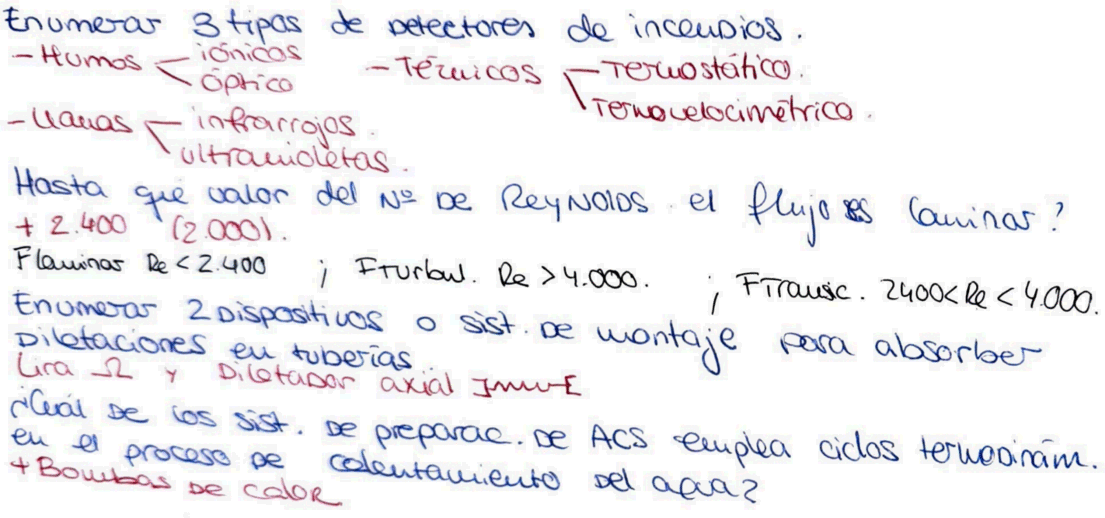 Enumerar 3 tipos de detectores de incendios.
- Humos < iónicos
óptico
- Térmicos < Termostático.
Termovelocimétrico.
- Llamas < infrarrojos.
ultravioletas.
Hasta que valor del Nº DE ReyNolDS el flujo es laminar?
+ 2.400 (2.000).
F laminar Re < 2.400 ; F Turbul. Re > 4.000. ; F Transic. 2400 < Re < 4.000.
Enumerar 2 Dispositivos o sist. de montaje para absorber
Dilataciones en tuberías.
Lira Ω y Dilatador axial
¿Cuál de los sist. de preparac. de ACS emplea ciclos termodinám.
en el proceso de calentamiento del agua?
+ Bombas de calor